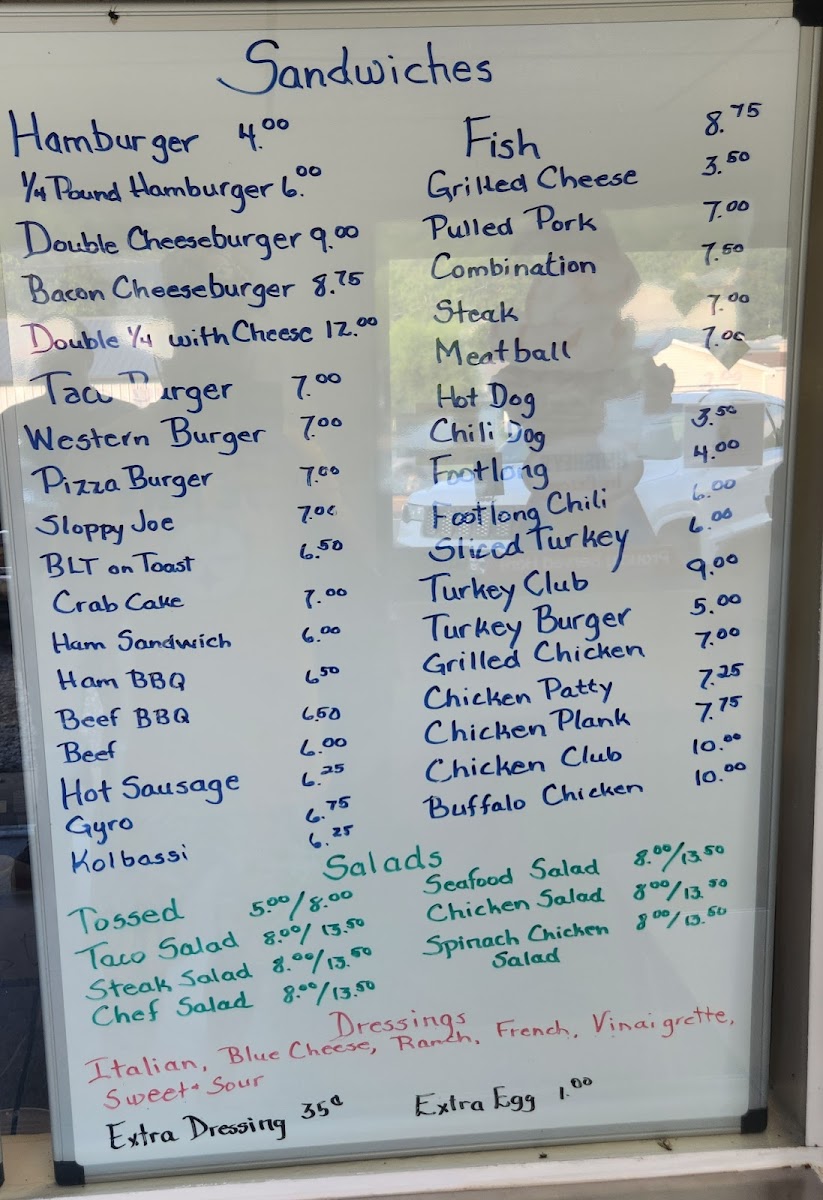 Sandwiches
Hamburger 4.00
1/4 Pound Hamburger 6.00
Double Cheeseburger 9.00
Bacon Cheeseburger 8.75
Double 1/4 with Cheese 12.00
Taco Burger 7.00
Western Burger 7.00
Pizza Burger 7.00
Sloppy Joe 7.00
BLT on Toast 6.50
Crab Cake 7.00
Ham Sandwich 6.00
Ham BBQ 6.50
Beef BBQ 6.50
Beef 6.00
Hot Sausage 6.25
Gyro 6.75
Kolbassi 6.25
Fish 8.75
Grilled Cheese 3.50
Pulled Pork 7.00
Combination 7.50
Steak 7.00
Meatball 7.00
Hot Dog
Chili Dog 3.50
Footlong 4.00
Footlong Chili 6.00
Sliced Turkey 6.00
Turkey Club 9.00
Turkey Burger 5.00
Grilled Chicken 7.00
Chicken Patty 7.25
Chicken Plank 7.75
Chicken Club 10.00
Buffalo Chicken 10.00
Salads
Tossed 5.00/8.00
Taco Salad 8.00/13.50
Steak Salad 8.00/13.50
Chef Salad 8.00/13.50
Seafood Salad 8.00/13.50
Chicken Salad 8.00/13.50
Spinach Chicken 8.00/13.50
Salad
Dressings
Italian, Blue Cheese, Ranch, French, Vinaigrette,
Sweet + Sour
Extra Dressing 35¢
Extra Egg 1.00